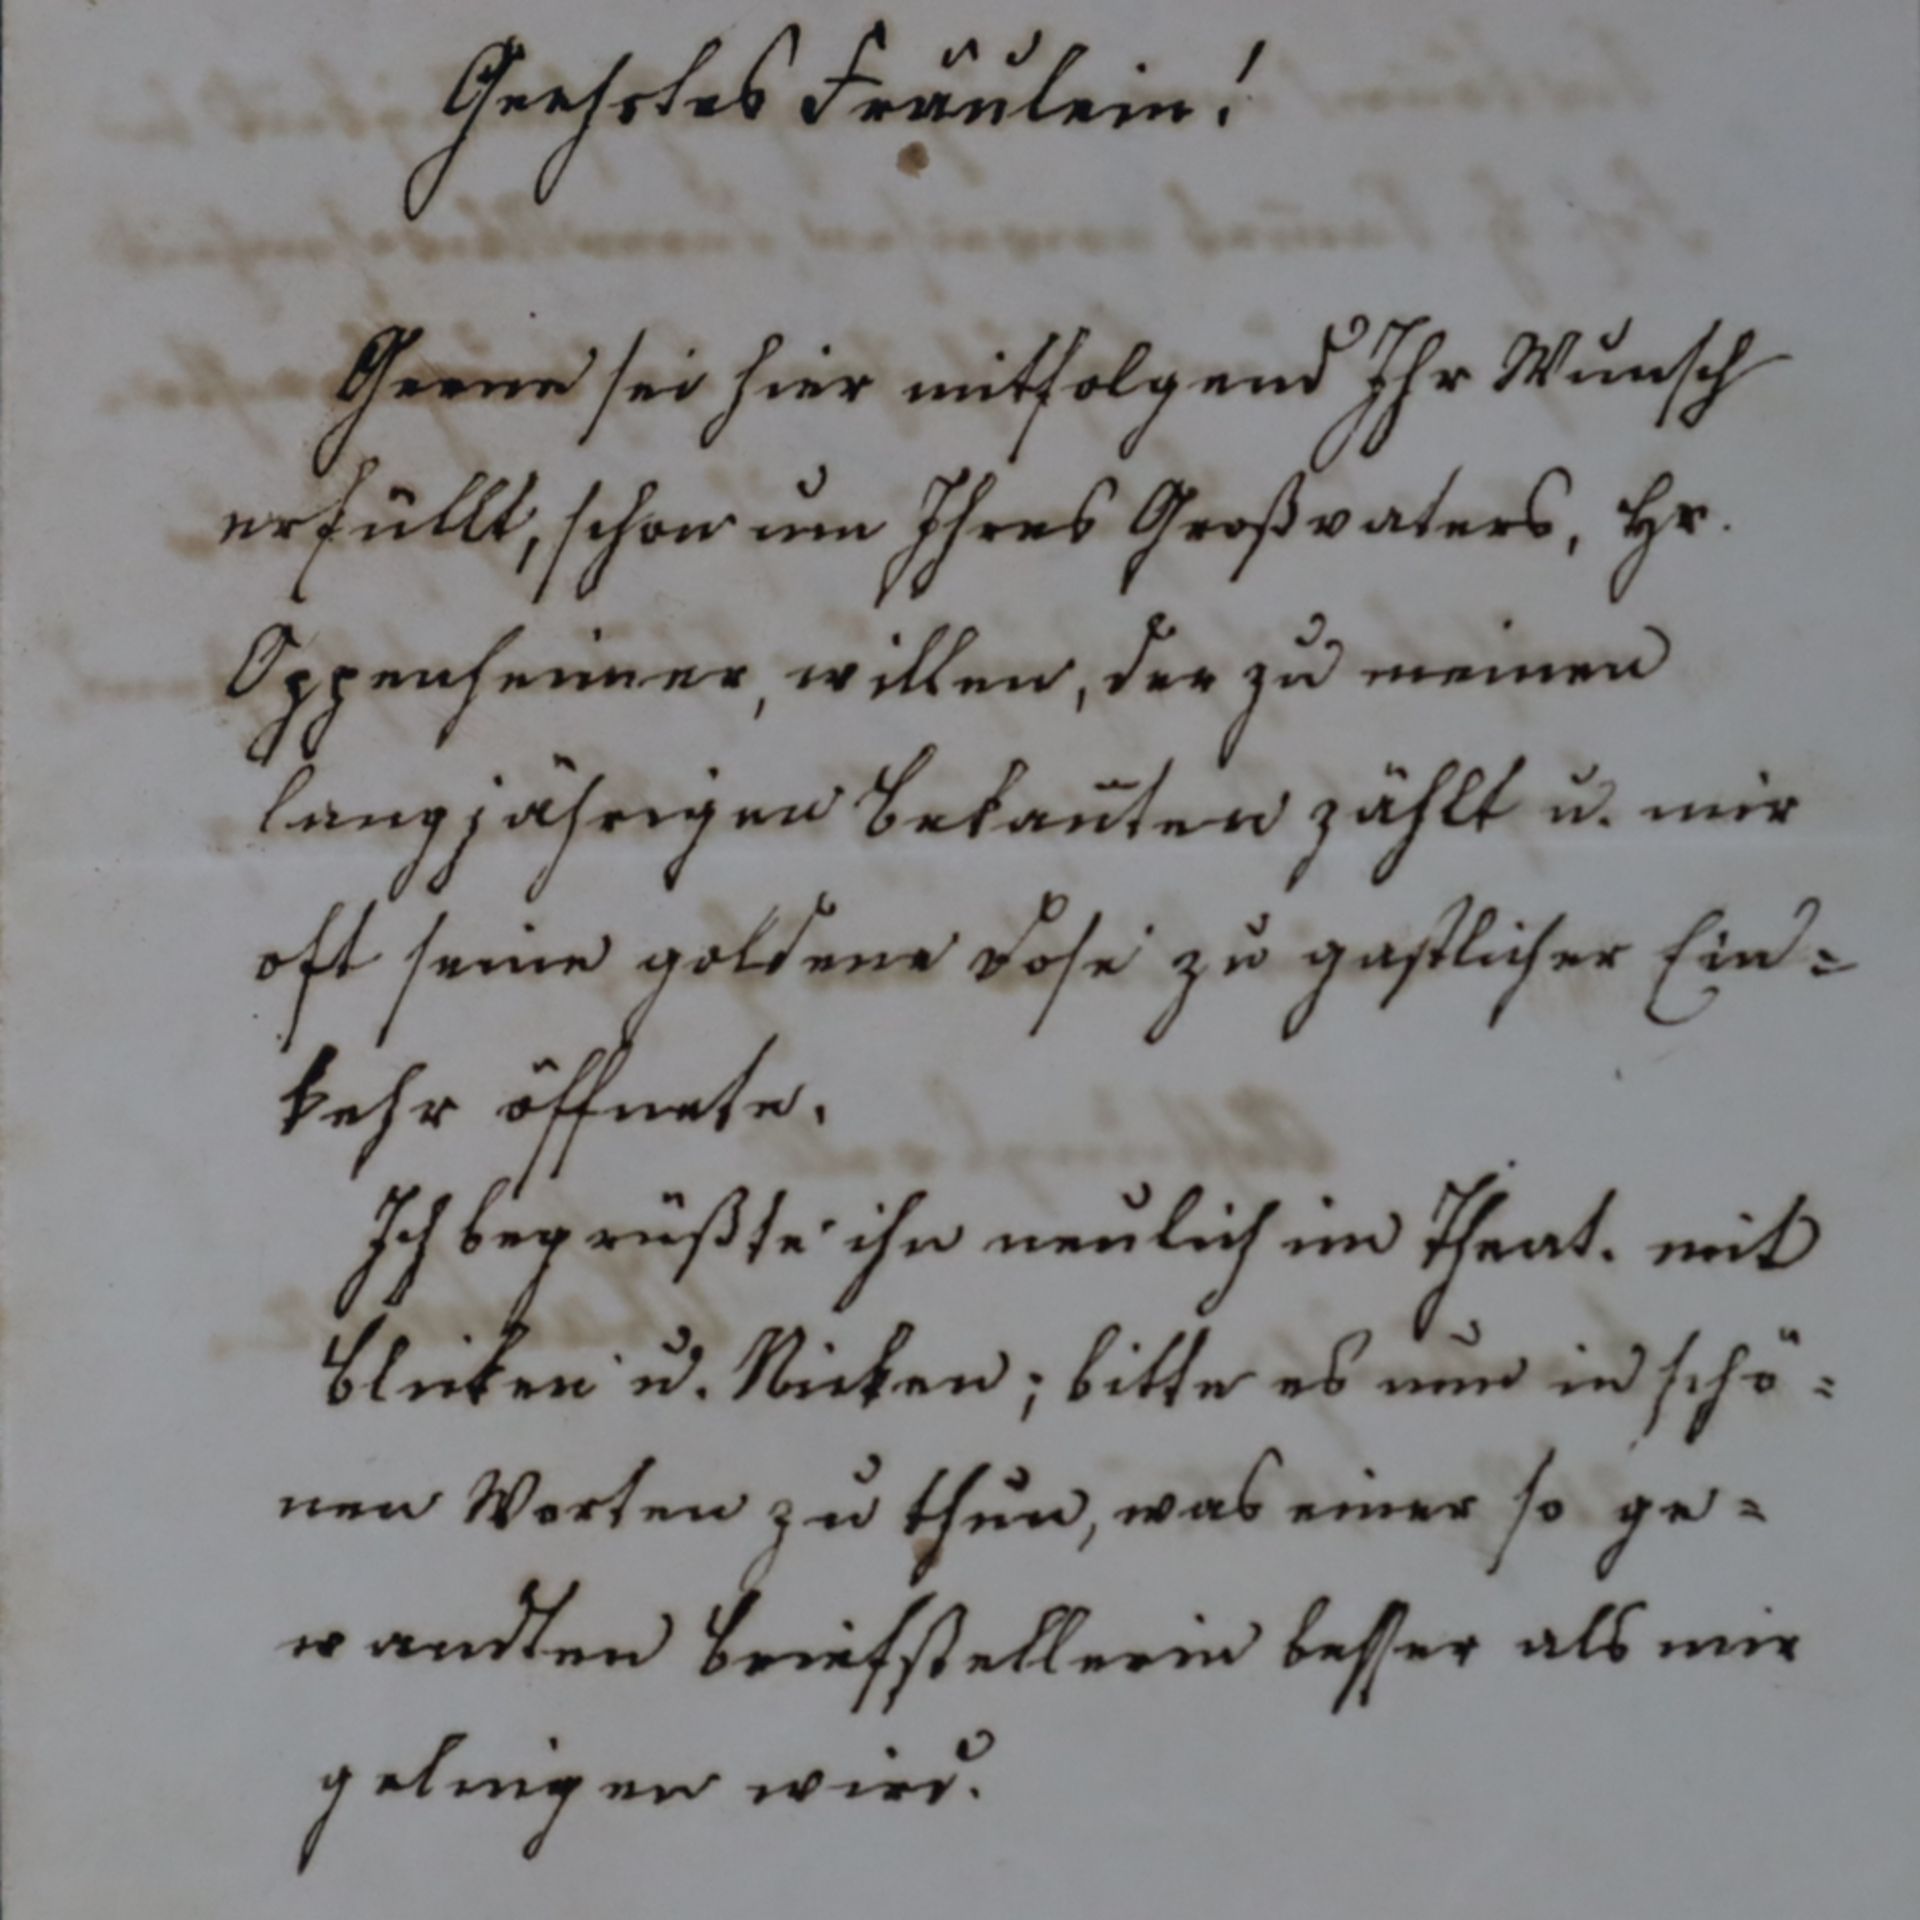 Geehrtes Fräulein!
Gerne sei hier mitfolgend Ihr Wunsch
erfüllt, schon um Ihres Großvaters, Hr.
Oppenheimer, willen, der zu meinen
langjährigen Bekan̄ten zählt u. mir
oft seine goldene Dose zu gastlicher Ein=
kehr öffnete.
Ich begrüßte ihn neulich im Theat. mit
Blicken u. Nicken; bitte es nun in schö=
nen Worten zu thun, was einer so ge=
wandten Briefstellerin besser als mir
gelingen wird.